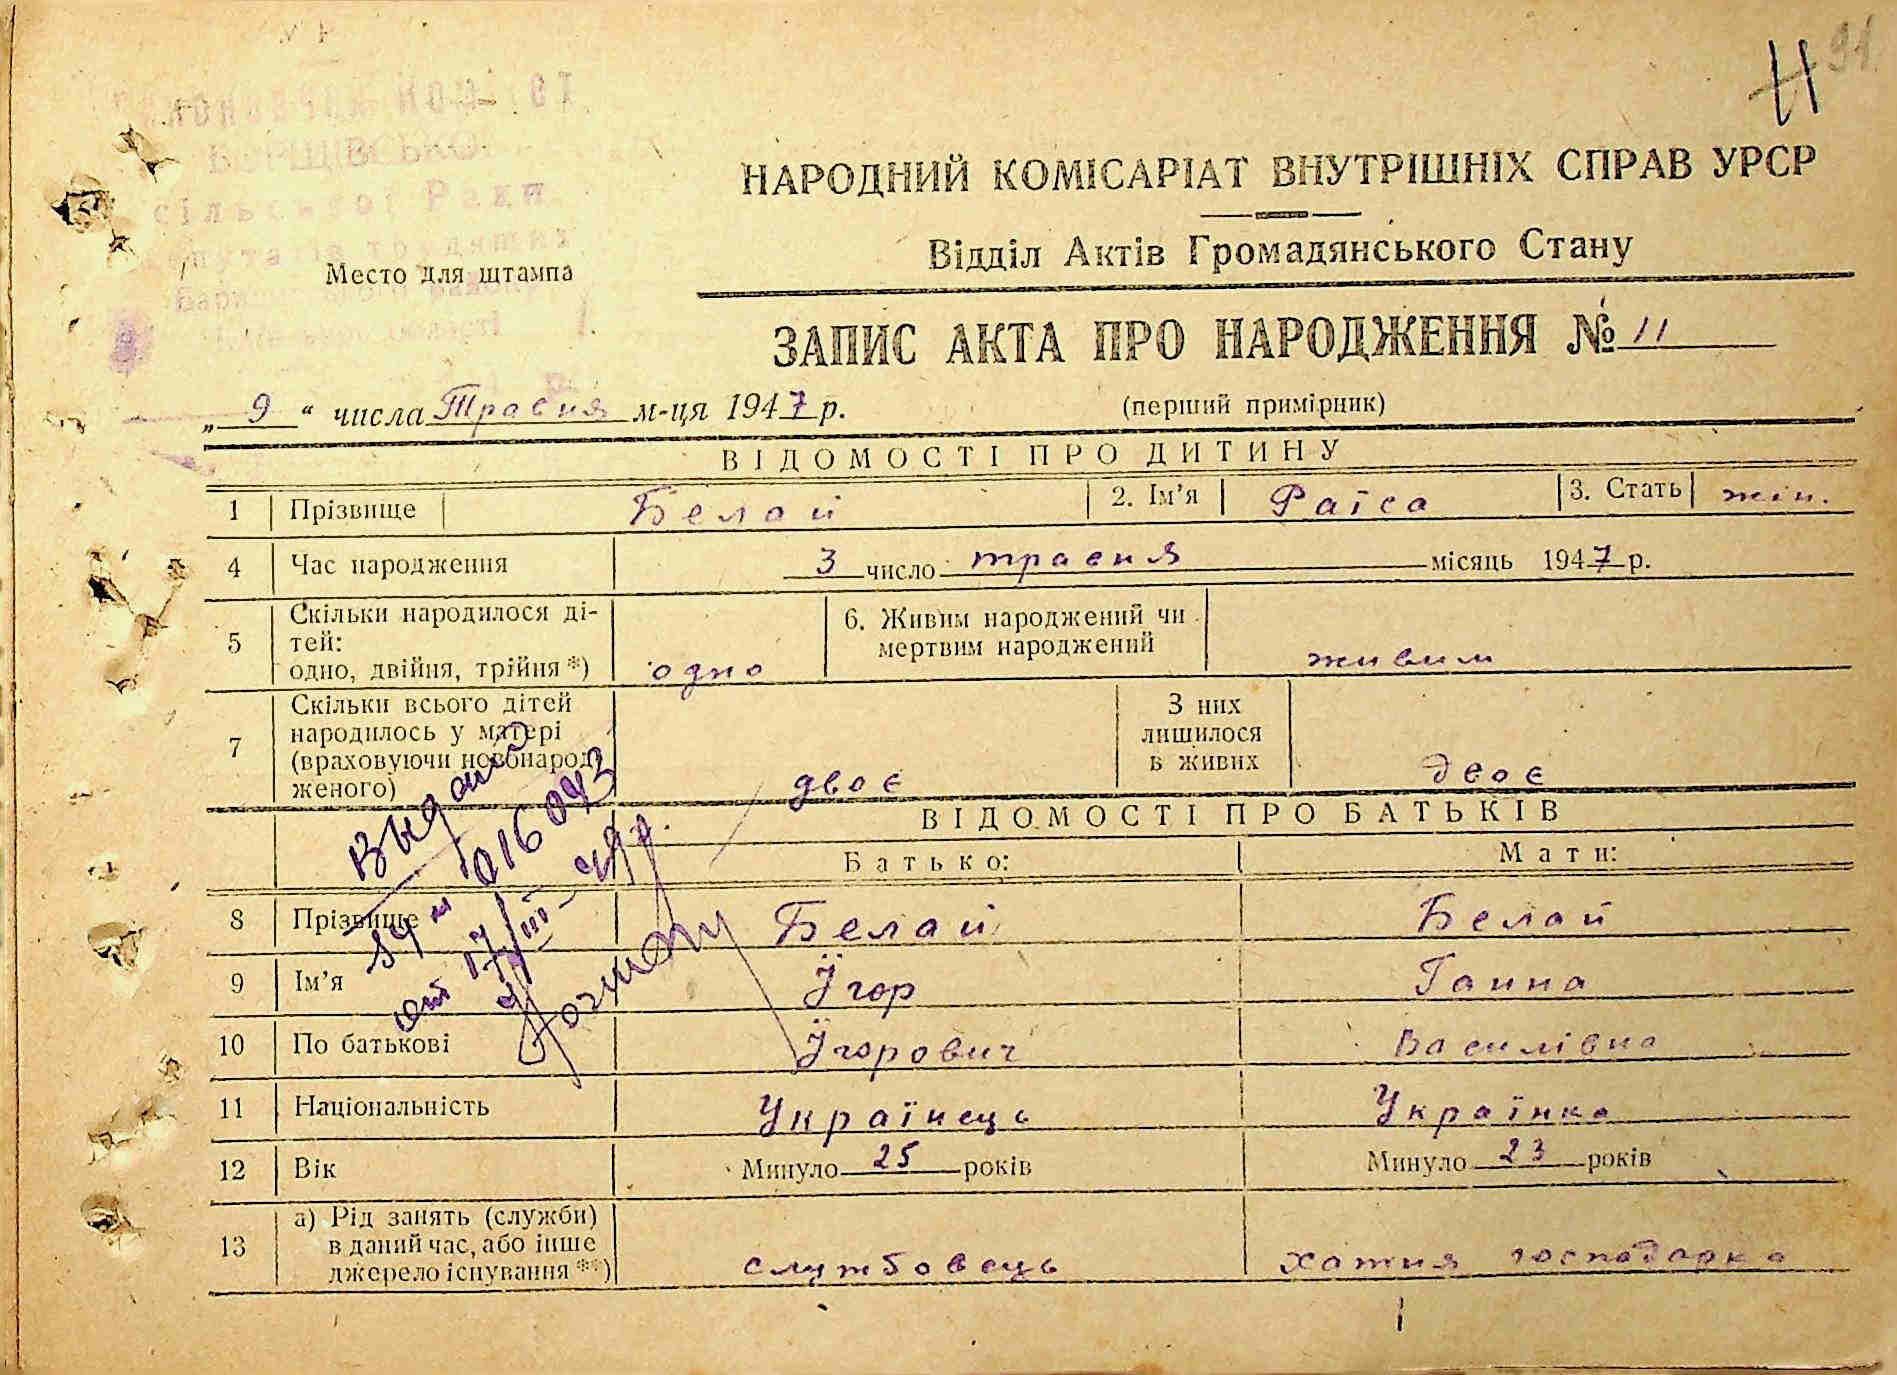 Н 91
НАРОДНИЙ КОМІСАРІАТ ВНУТРІШНІХ СПРАВ УРСР
Відділ Актів Громадянського Стану
сільської Ради
Место для штампа
ЗАПИС АКТА ПРО НАРОДЖЕННЯ № 11
„9“ числа Травня м-ця 1947 р. (перший примірник)
ВІДОМОСТІ ПРО ДИТИНУ
1 Прізвище Белай 2. Ім’я Раїса 3. Стать жін.
4 Час народження 3 число травня місяць 1947 р.
5 Скільки народилося ді-
тей:
одно, двійня, трійня *) одно
6. Живим народжений чи
мертвим народжений живим
7 Скільки всього дітей
народилось у матері
(враховуючи новонарод-
женого) двоє
З них
лишилося
в живих двоє
ВІДОМОСТІ ПРО БАТЬКІВ
Батько: Мати:
8 Прізвище Белай Белай
9 Ім’я Ўгор Ганна
10 По батькові Ўгорович Василівна
11 Національність Українець Українка
12 Вік Минуло 25 років Минуло 23 років
13 а) Рід занять (служби)
в даний час, або інше
джерело існування **) службовець хатня господарка
Выдано
016043
от 17/III-49 р.